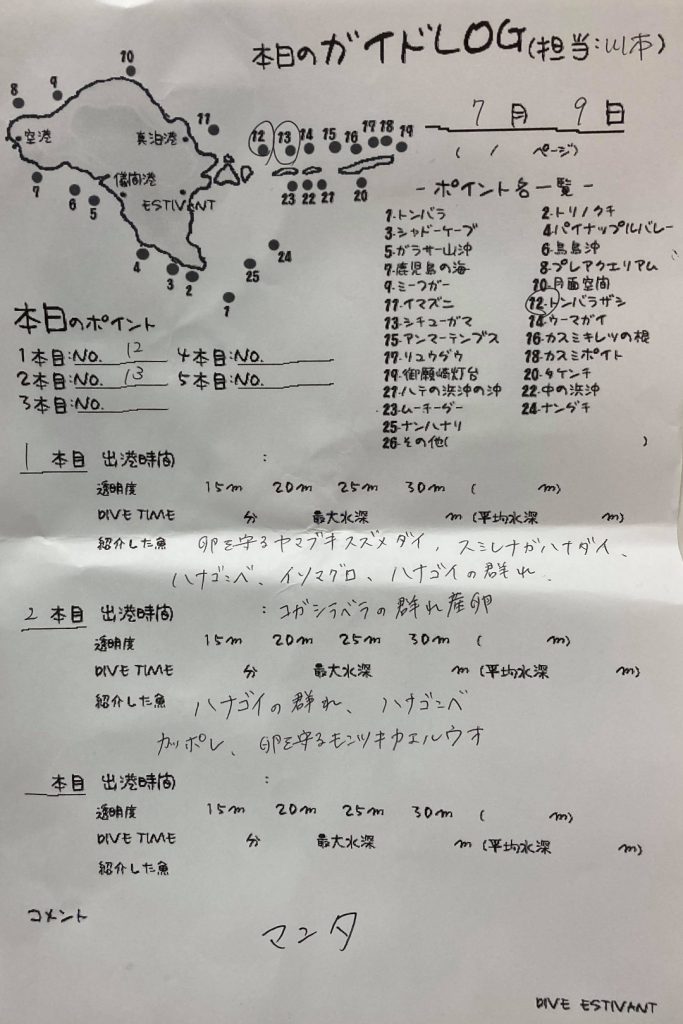 本日のガイドLOG(担当:川本)
7月 9日
( / ページ)
8 9 10 11 12 13 14 15 16 17 18 19
空港 真泊港
儀間港
ESTIVANT
7 6 5 4 3 2 1 25 24 23 22 21 20
- ポイント名一覧 -
1.トンバラ 2.トリノクチ
3.シャドーケーブ 4.パイナップルバレー
5.ガラサー山沖 6.鳥島沖
7.鹿児島の海 8.プレアクエリアム
9.ミーフガー 10.月面空間
11.イマズニ 12.トンバラザシ
13.シチューガマ 14.ウーマガイ
15.アンマーテンブス 16.カスミキレツの根
17.リュウダウ 18.カスミポイト
19.御願崎灯台 20.タケンチ
21.ハテの浜沖の沖 22.中の浜沖
23.ムーチーダー 24.ナンダチ
25.ナンハナリ
26.その他( )
本日のポイント
1本目:NO. 12 4本目:NO.
2本目:NO. 13 5本目:NO.
3本目:NO.
1 本目 出港時間 :
透明度 15m 20m 25m 30m ( m)
DIVE TIME 分 最大水深 m (平均水深 m)
紹介した魚 卵を守るヤマブキスズメダイ、スミレナガハナダイ、
ハナゴンベ、イソマグロ、ハナゴイの群れ、
コガシラベラの群れ産卵
2 本目 出港時間 :
透明度 15m 20m 25m 30m ( m)
DIVE TIME 分 最大水深 m (平均水深 m)
紹介した魚 ハナゴイの群れ、ハナゴンベ
カッポレ、卵を守るモンツキカエルウオ
本目 出港時間 :
透明度 15m 20m 25m 30m ( m)
DIVE TIME 分 最大水深 m (平均水深 m)
紹介した魚
コメント
マンタ
DIVE ESTIVANT